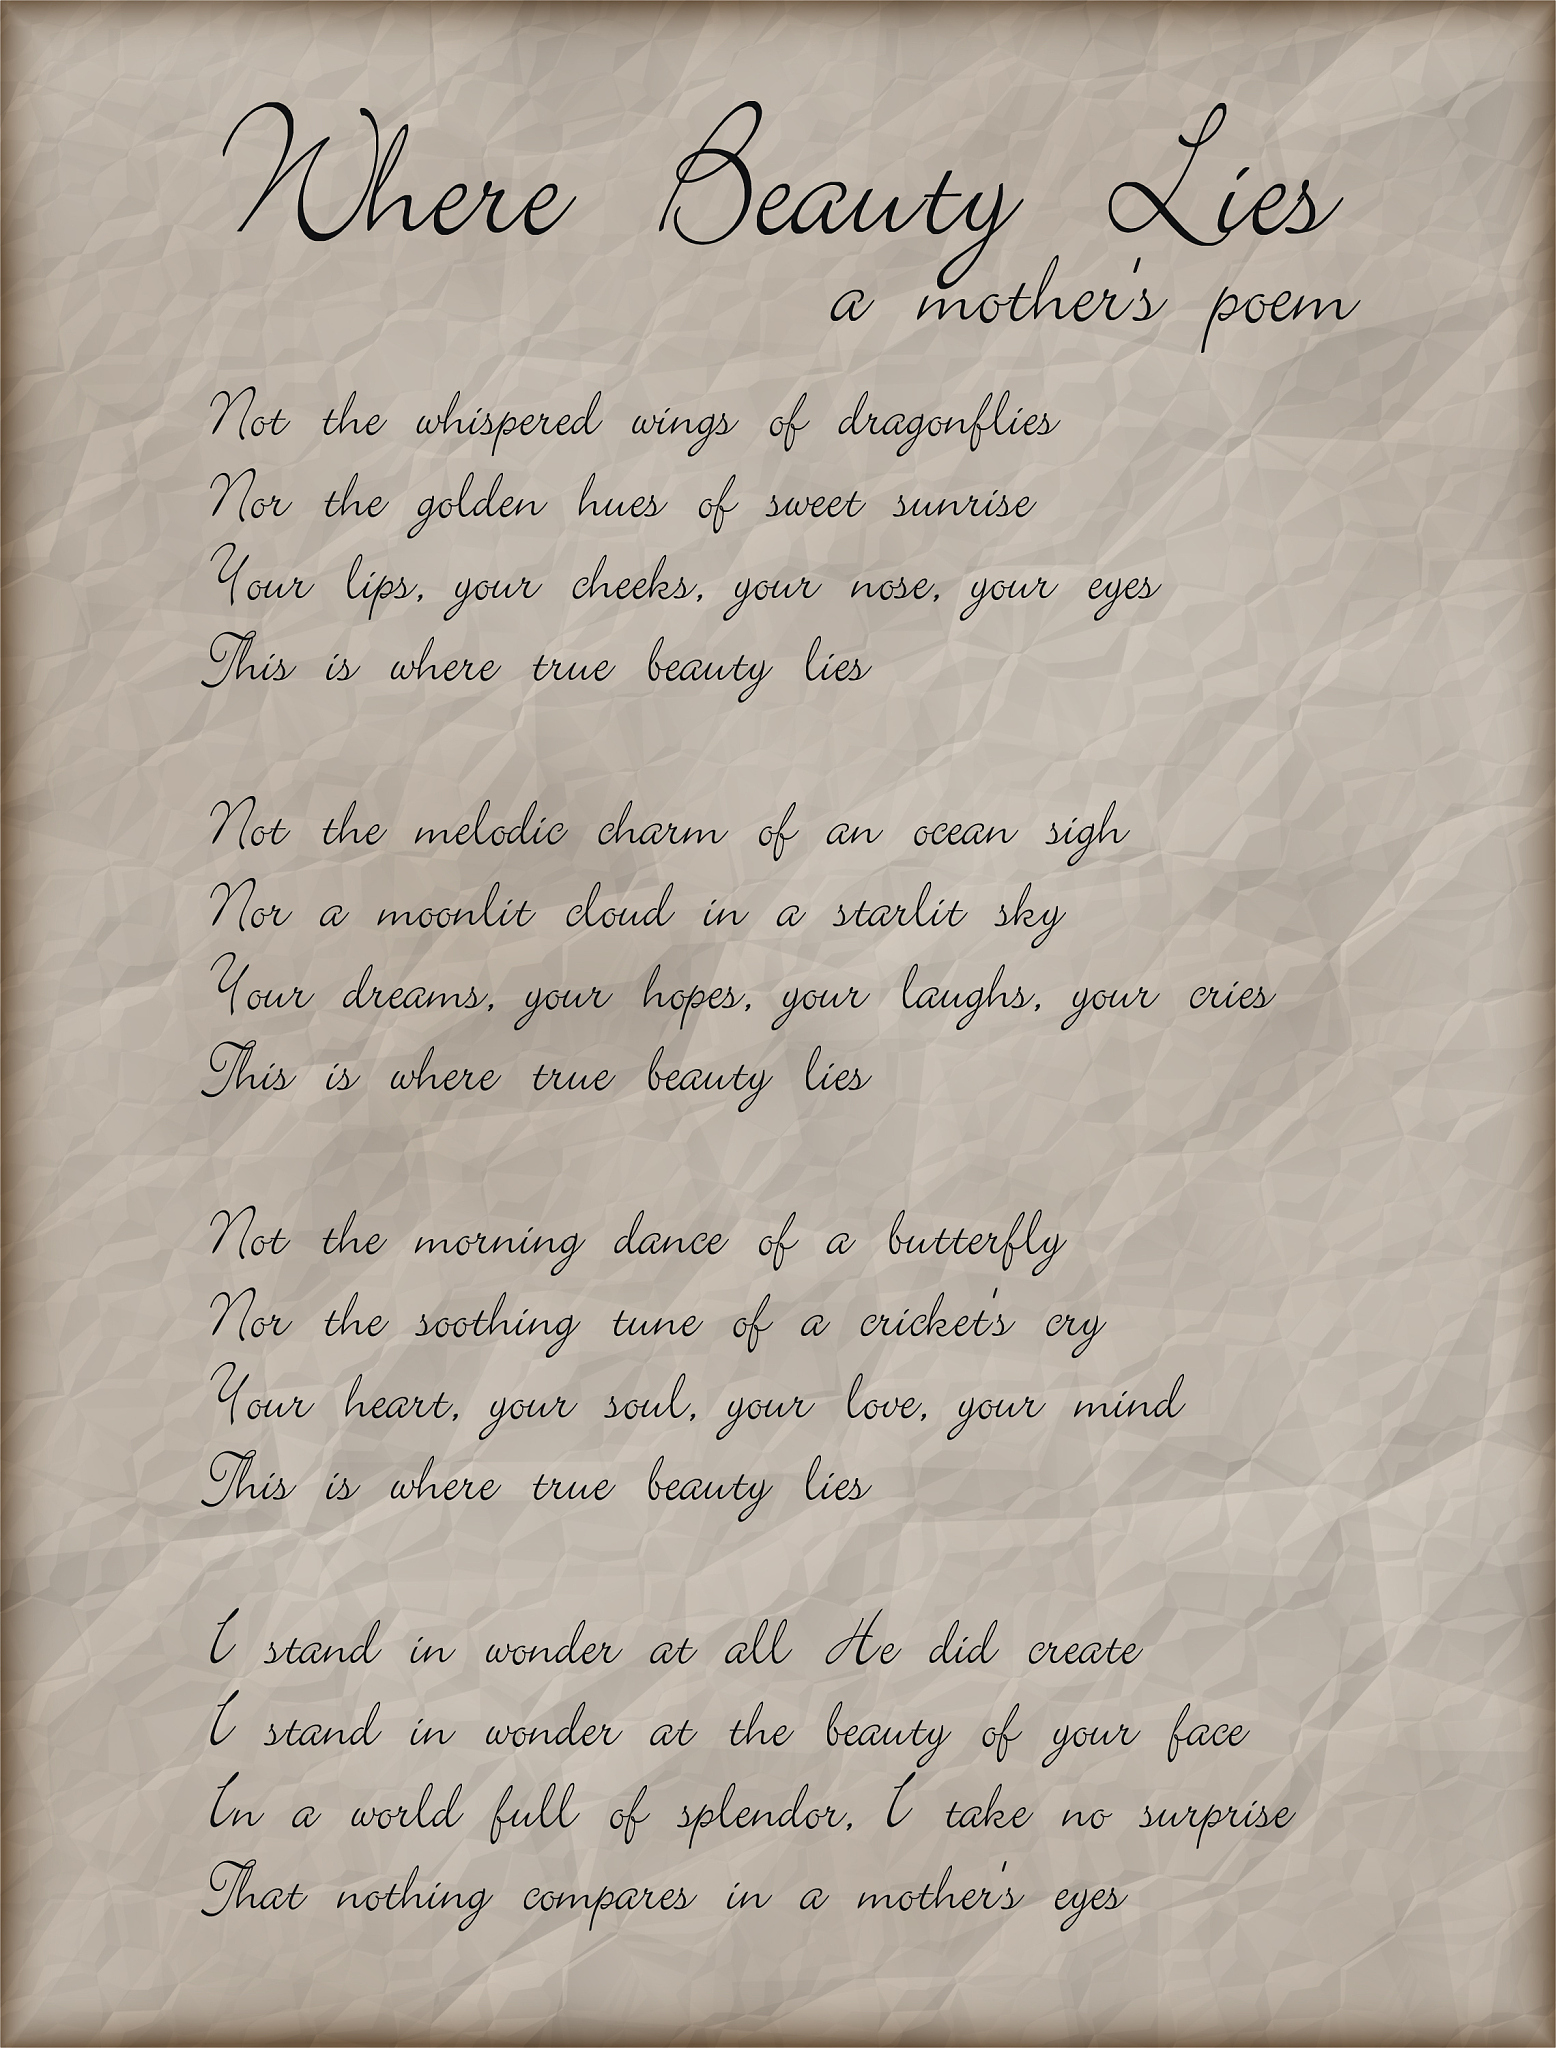 Where Beauty Lies
a mother's poem
Not the whispered wings of dragonflies
Nor the golden hues of sweet sunrise
Your lips, your cheeks, your nose, your eyes
This is where true beauty lies
Not the melodic charm of an ocean sigh
Nor a moonlit cloud in a starlit sky
Your dreams, your hopes, your laughs, your cries
This is where true beauty lies
Not the morning dance of a butterfly
Nor the soothing tune of a cricket's cry
Your heart, your soul, your love, your mind
This is where true beauty lies
I stand in wonder at all He did create
I stand in wonder at the beauty of your face
In a world full of splendor, I take no surprise
That nothing compares in a mother's eyes